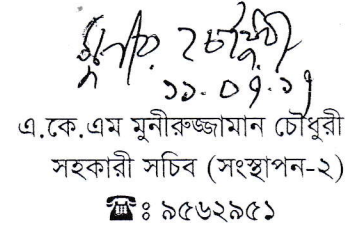 মুনীর চৌধুরী
১১.০৭.১৭
এ.কে.এম মুনীরুজ্জামান চৌধুরী
সহকারী সচিব (সংস্থাপন-২)
☎ঃ ৯৫৬২৯৫১